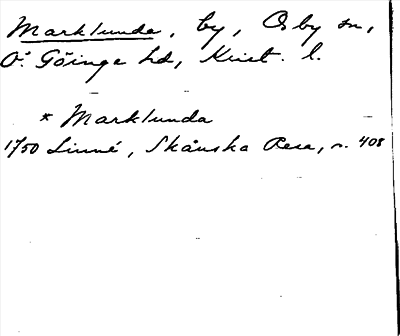 Marklunda, by, Osby sn,
Ö. Göinge hd, Krist. l.
* Marklunda
1750 Linné, Skånska Resa, s. 408